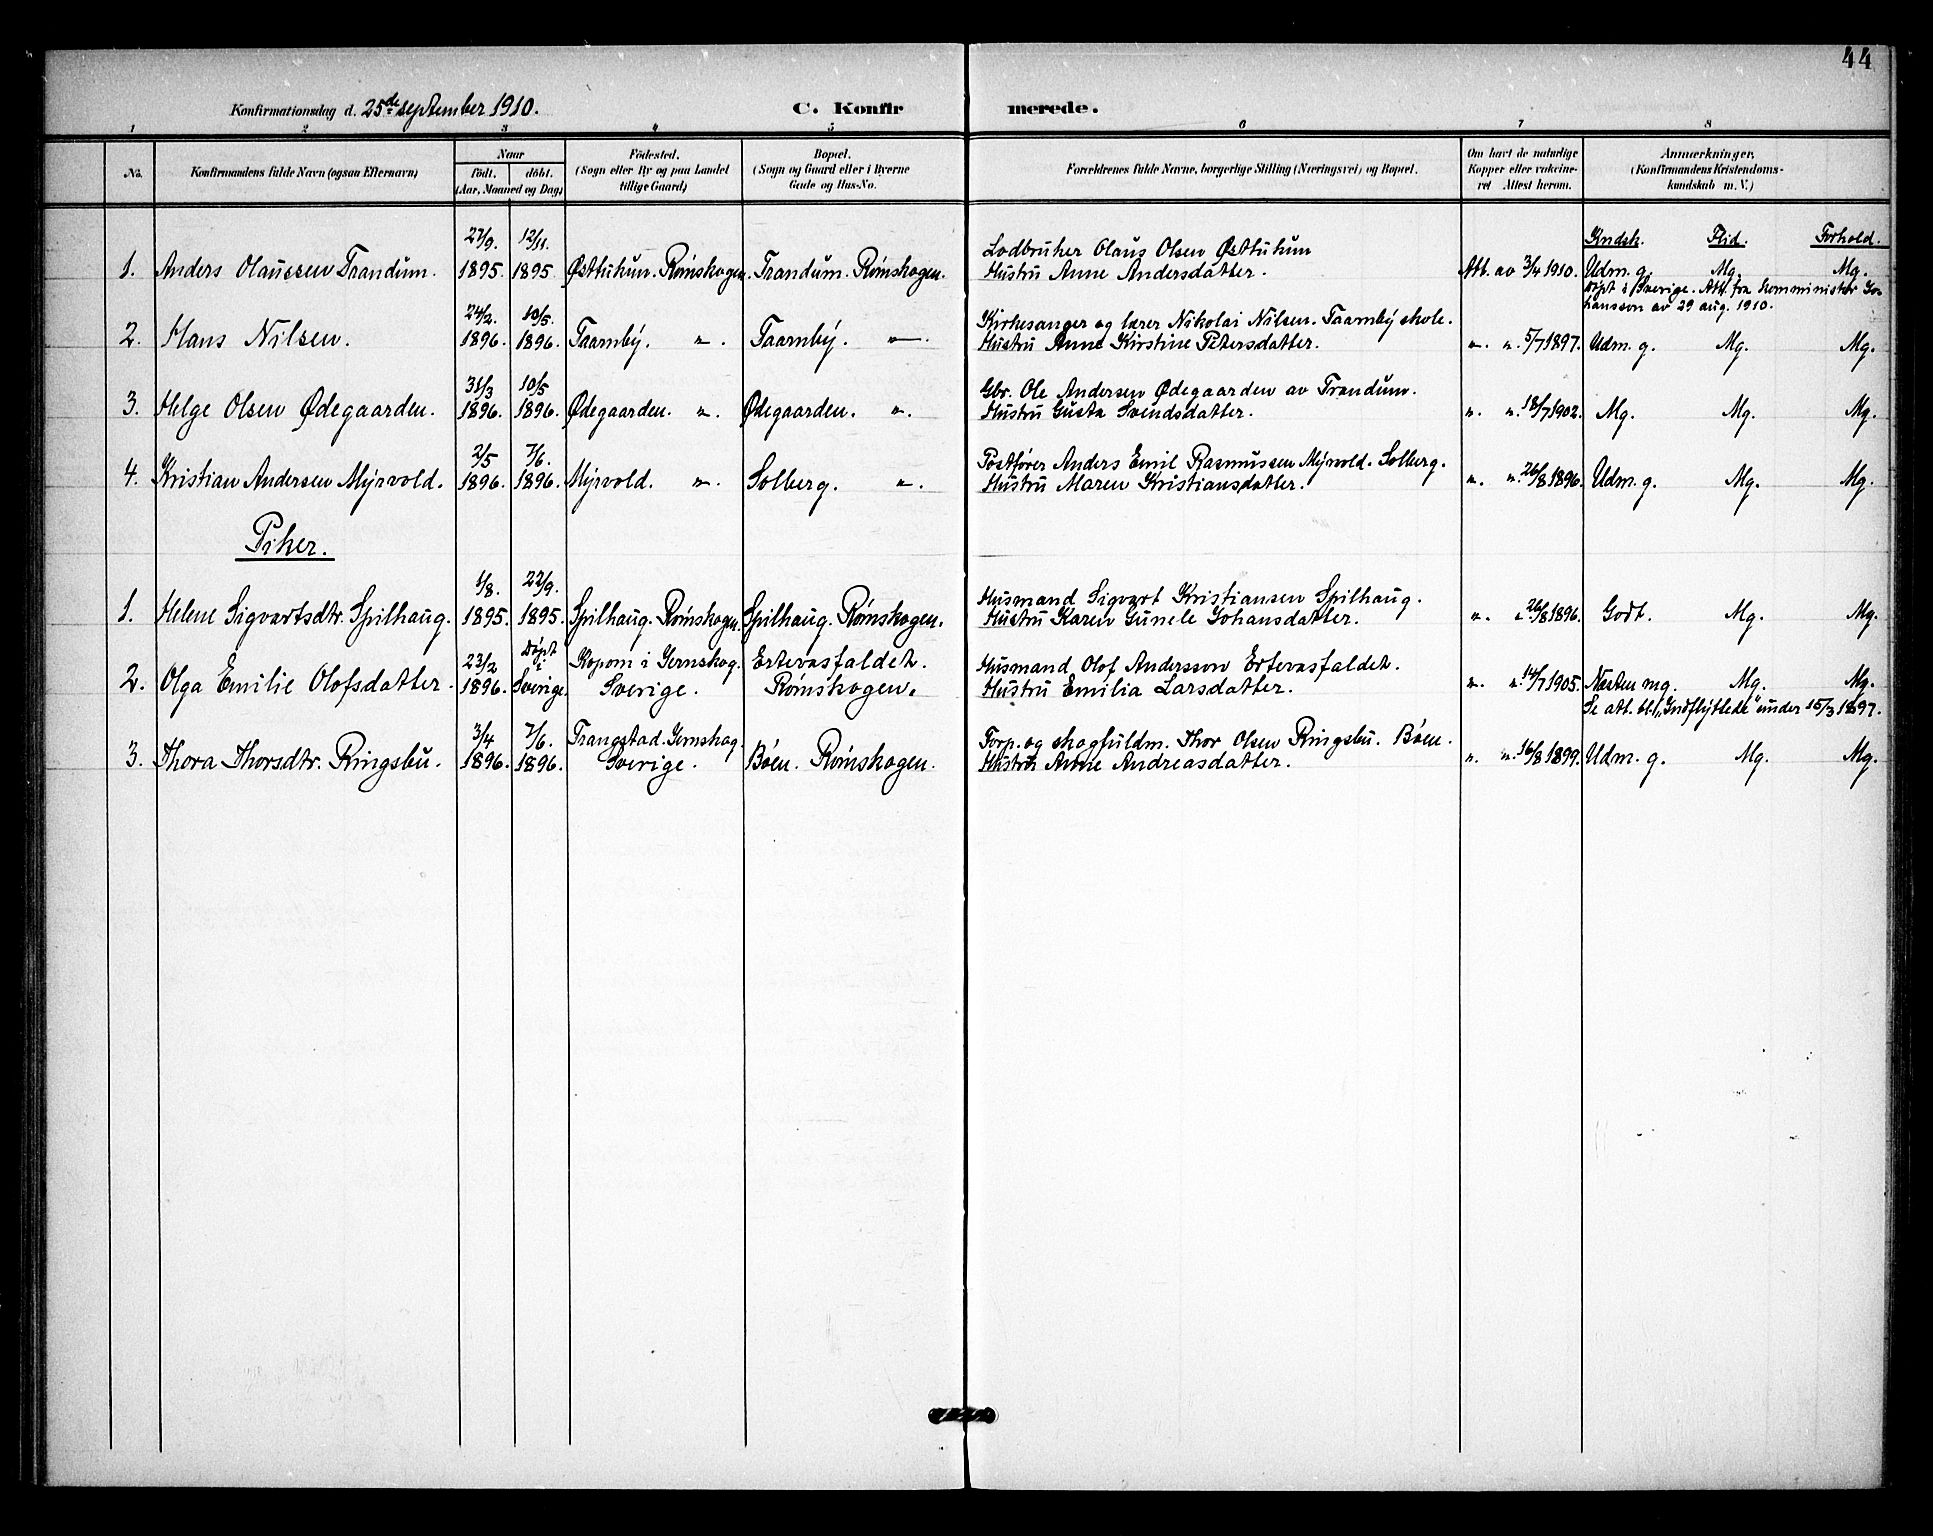 44
Konfirmationsdag d. 25de september 1910.
C. Konfirmerede.
1 2 3 4 5 6 7 8
No.
Konfirmandens fulde Navn (ogsaa Efternavn)
Naar
födt. döbt.
(Aar, Maaned og Dag)
Födested.
(Sogn eller By og paa Landet
tillige Gaard)
Bopæl.
(Sogn og Gaard eller i Byerne
Gade og Hus-No.
Forældrenes fulde Navne, borgerlige Stilling (Næringsvei) og Bopæl.
Om havt de naturlige
Kopper eller vakcine-
ret Attest herom.
Anmærkninger,
(Konfirmandens Kristendoms-
kundskab m. V.)
Kndsk. Flid. Forhold.
27/9. 12/11. Lodbruker Olaus Olsen Østtukun
1. Anders Olaussen Trandum. 1895. 1895. Østtukun. Rømskogen. Trandum. Rømskogen. Hustru Anne Andersdatter. Att. av 3/4 1910. Udm. g. Mg. Mg.
Døpt i Sverige. Att. fra komminister Jo-
hansson av 29 aug. 1910.
24/2. 10/5. Kirkesanger og lærer Nikolai Nilsen. Taarnby skole.
2. Hans Nilsen. 1896. 1896. Taarnby. „. Taarnby. „. Hustru Anne Kirstine Petersdatter. „. „. 5/7 1897. Udm. g. Mg. Mg.
31/3 10/5 Gbr. Ole Andersen Ødegaarden av Trandum.
3. Helge Olsen Ødegaarden. 1896. 1896. Ødegaarden. „. Ødegaarden. „. Hustru Gusta Svendsdatter. „. „. 18/7 1902. Mg. Mg. Mg.
2/5 7/6. Postfører Anders Emil Rasmussen Myrvold. Solberg.
4. Kristian Andersen Myrvold. 1896. 1896. Myrvold. „. Solberg. „. Hustru Maren Kristiansdatter. „. „. 26/8 1896. Udm. g. Mg. Mg.
Piker.
1/8. 22/9. Husmand Sigvart Kristiansen Spilhaug.
1. Helene Sigvartsdtr. Spilhaug. 1895. 1895. Spilhaug. Rømskogen. Spilhaug. Rømskogen. Hustru Karen Gunele Johansdatter. „. „. 26/8 1896. Godt. Mg. Mg.
23/2 Døpt i Koppom i Jernskog. Ertevasfaldet. Husmand Olof Andersson Ertevasfaldet.
2. Olga Emilie Olofsdatter. 1896. Sverige. Sverige. Rømskogen. Hustru Emilia Larsdatter. „. „. 14/7 1905. Næsten mg. Mg. Mg.
Se att. bl. „Indflyttede" under 15/3 1897.
3/4 7/6. Trangstad. Jernskog. Forp. og skogfuldm. Thor Olsen Ringsbu. Bøen.
3. Thora Thorsdtr. Ringsbu. 1896. 1896. Sverige. Bøen. Rømskogen. Hustru Anne Andreasdatter. „. „. 16/8 1899. Udm. g. Mg. Mg.